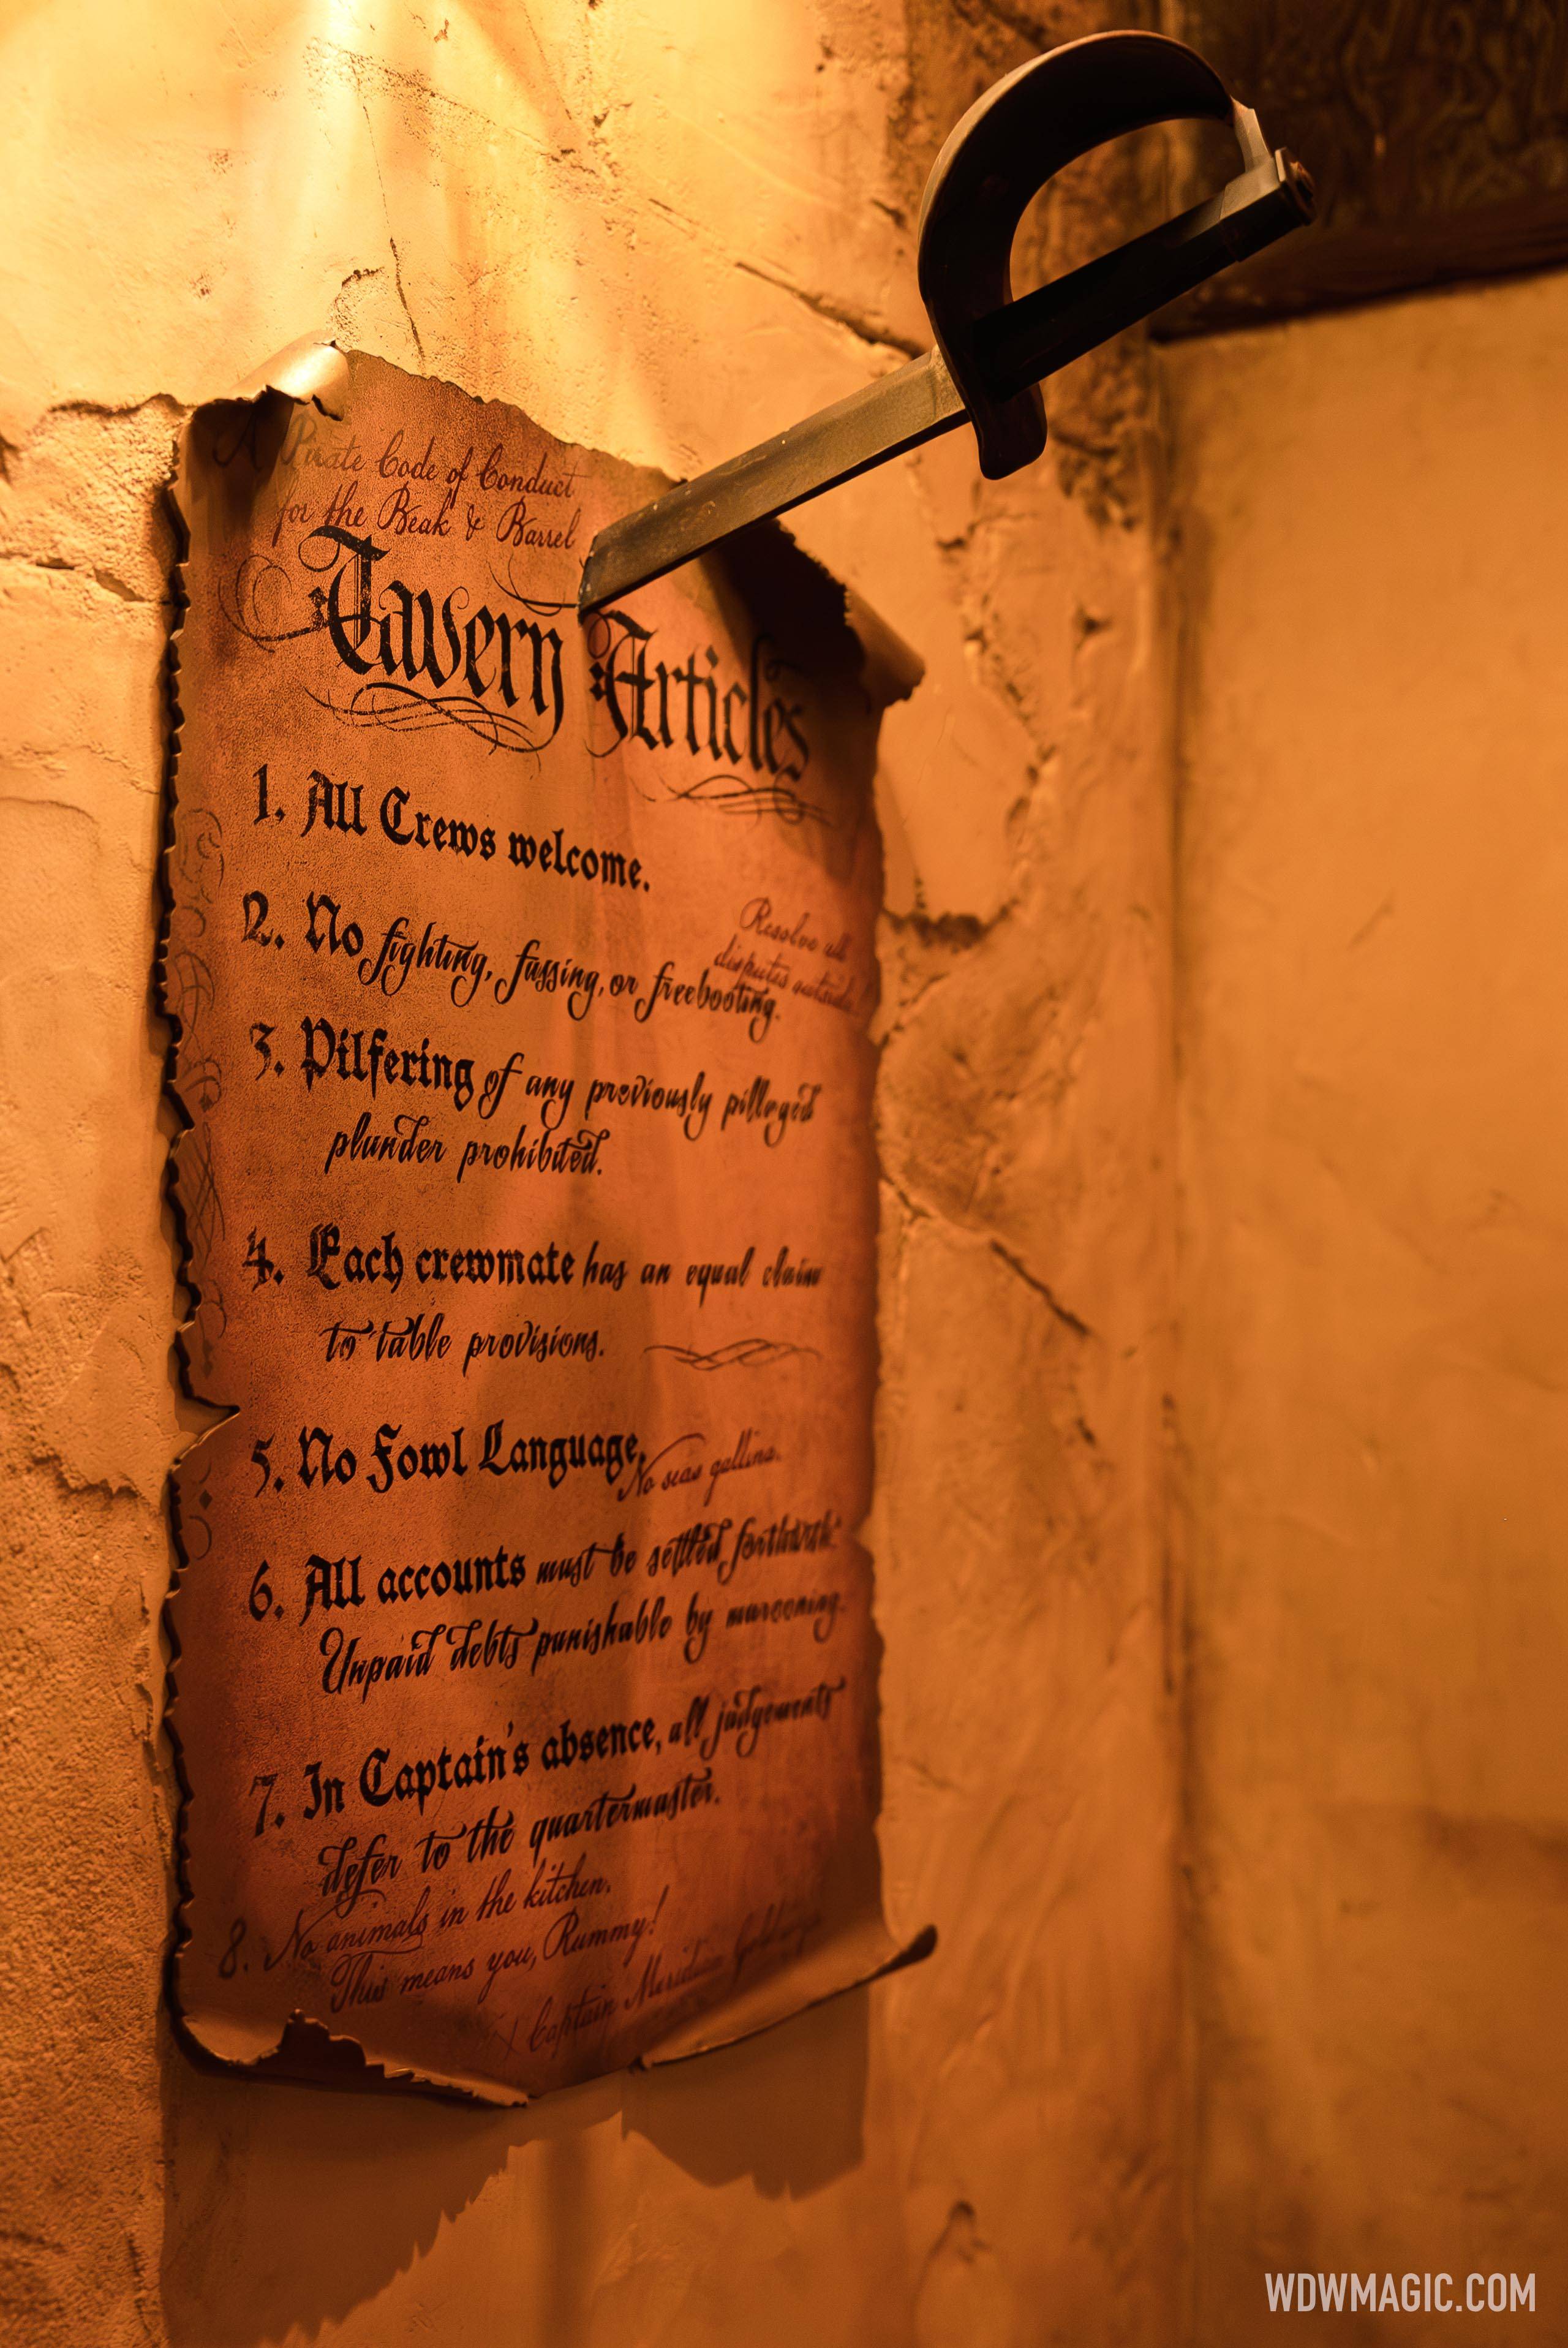 A Pirate Code of Conduct
for the Beak & Barrel
Tavern Articles
1. All Crews welcome.
Resolve all
disputes outside.
2. No fighting, fussing, or freebooting.
3. Pilfering of any previously pillaged
plunder prohibited.
4. Each crewmate has an equal claim
to table provisions.
5. No Fowl Language.
No seas gallina.
6. All accounts must be settled forthwith.
Unpaid debts punishable by marooning.
7. In Captain's absence, all judgements
defer to the quartermaster.
8. No animals in the kitchen.
This means you, Rummy!
X Captain Meridian
WDWMAGIC.COM